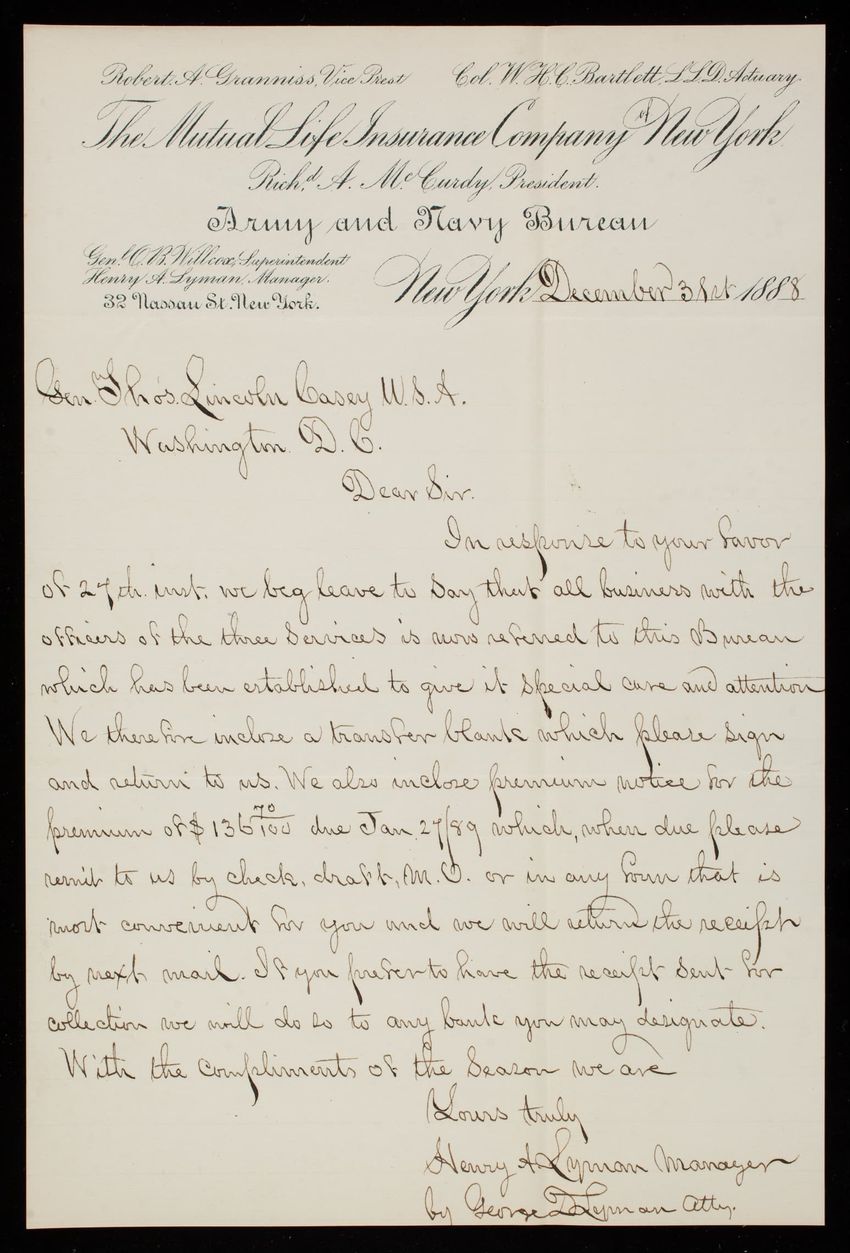 Robert A. Granniss, Vice Prest Col. W. H. C. Bartlett, L L D. Actuary.
The Mutual Life Insurance Company of New York
Rich.d A. Mc Curdy, President.
Army and Navy Bureau
Genl. O. B. Willcox, Superintendent
Henry A. Lyman, Manager.
32 Nassau St. New York.
New York December 31st 1888
Gen. Thos. Lincoln Casey U. S. A.
Washington. D. C.
Dear Sir.
In response to your favor
of 27th. inst. we beg leave to say that all business with the
officers of the three Services is now referred to this Bureau
which has been established to give it special care and attention
We therefore inclose a transfer blank which please sign
and return to us. We also inclose premium notice for the
premium of $ 136 70/100 due Jan. 27/89 which, when due please
remit to us by check, draft, M. O. or in any form that is
most convenient for you and we will return the receipt
by next mail. If you prefer to have the receipt sent for
collection we will do so to any bank you may designate.
With the compliments of the Season we are
Yours truly
Henry A Lyman Manager
by George D Lyman Atty.